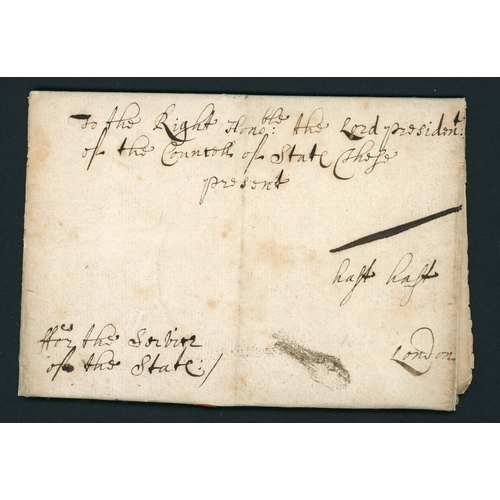 To the Right Honoble: the Lord president:
of the Councell of State These
present
hast hast
ffor the Service
of the State:/
London